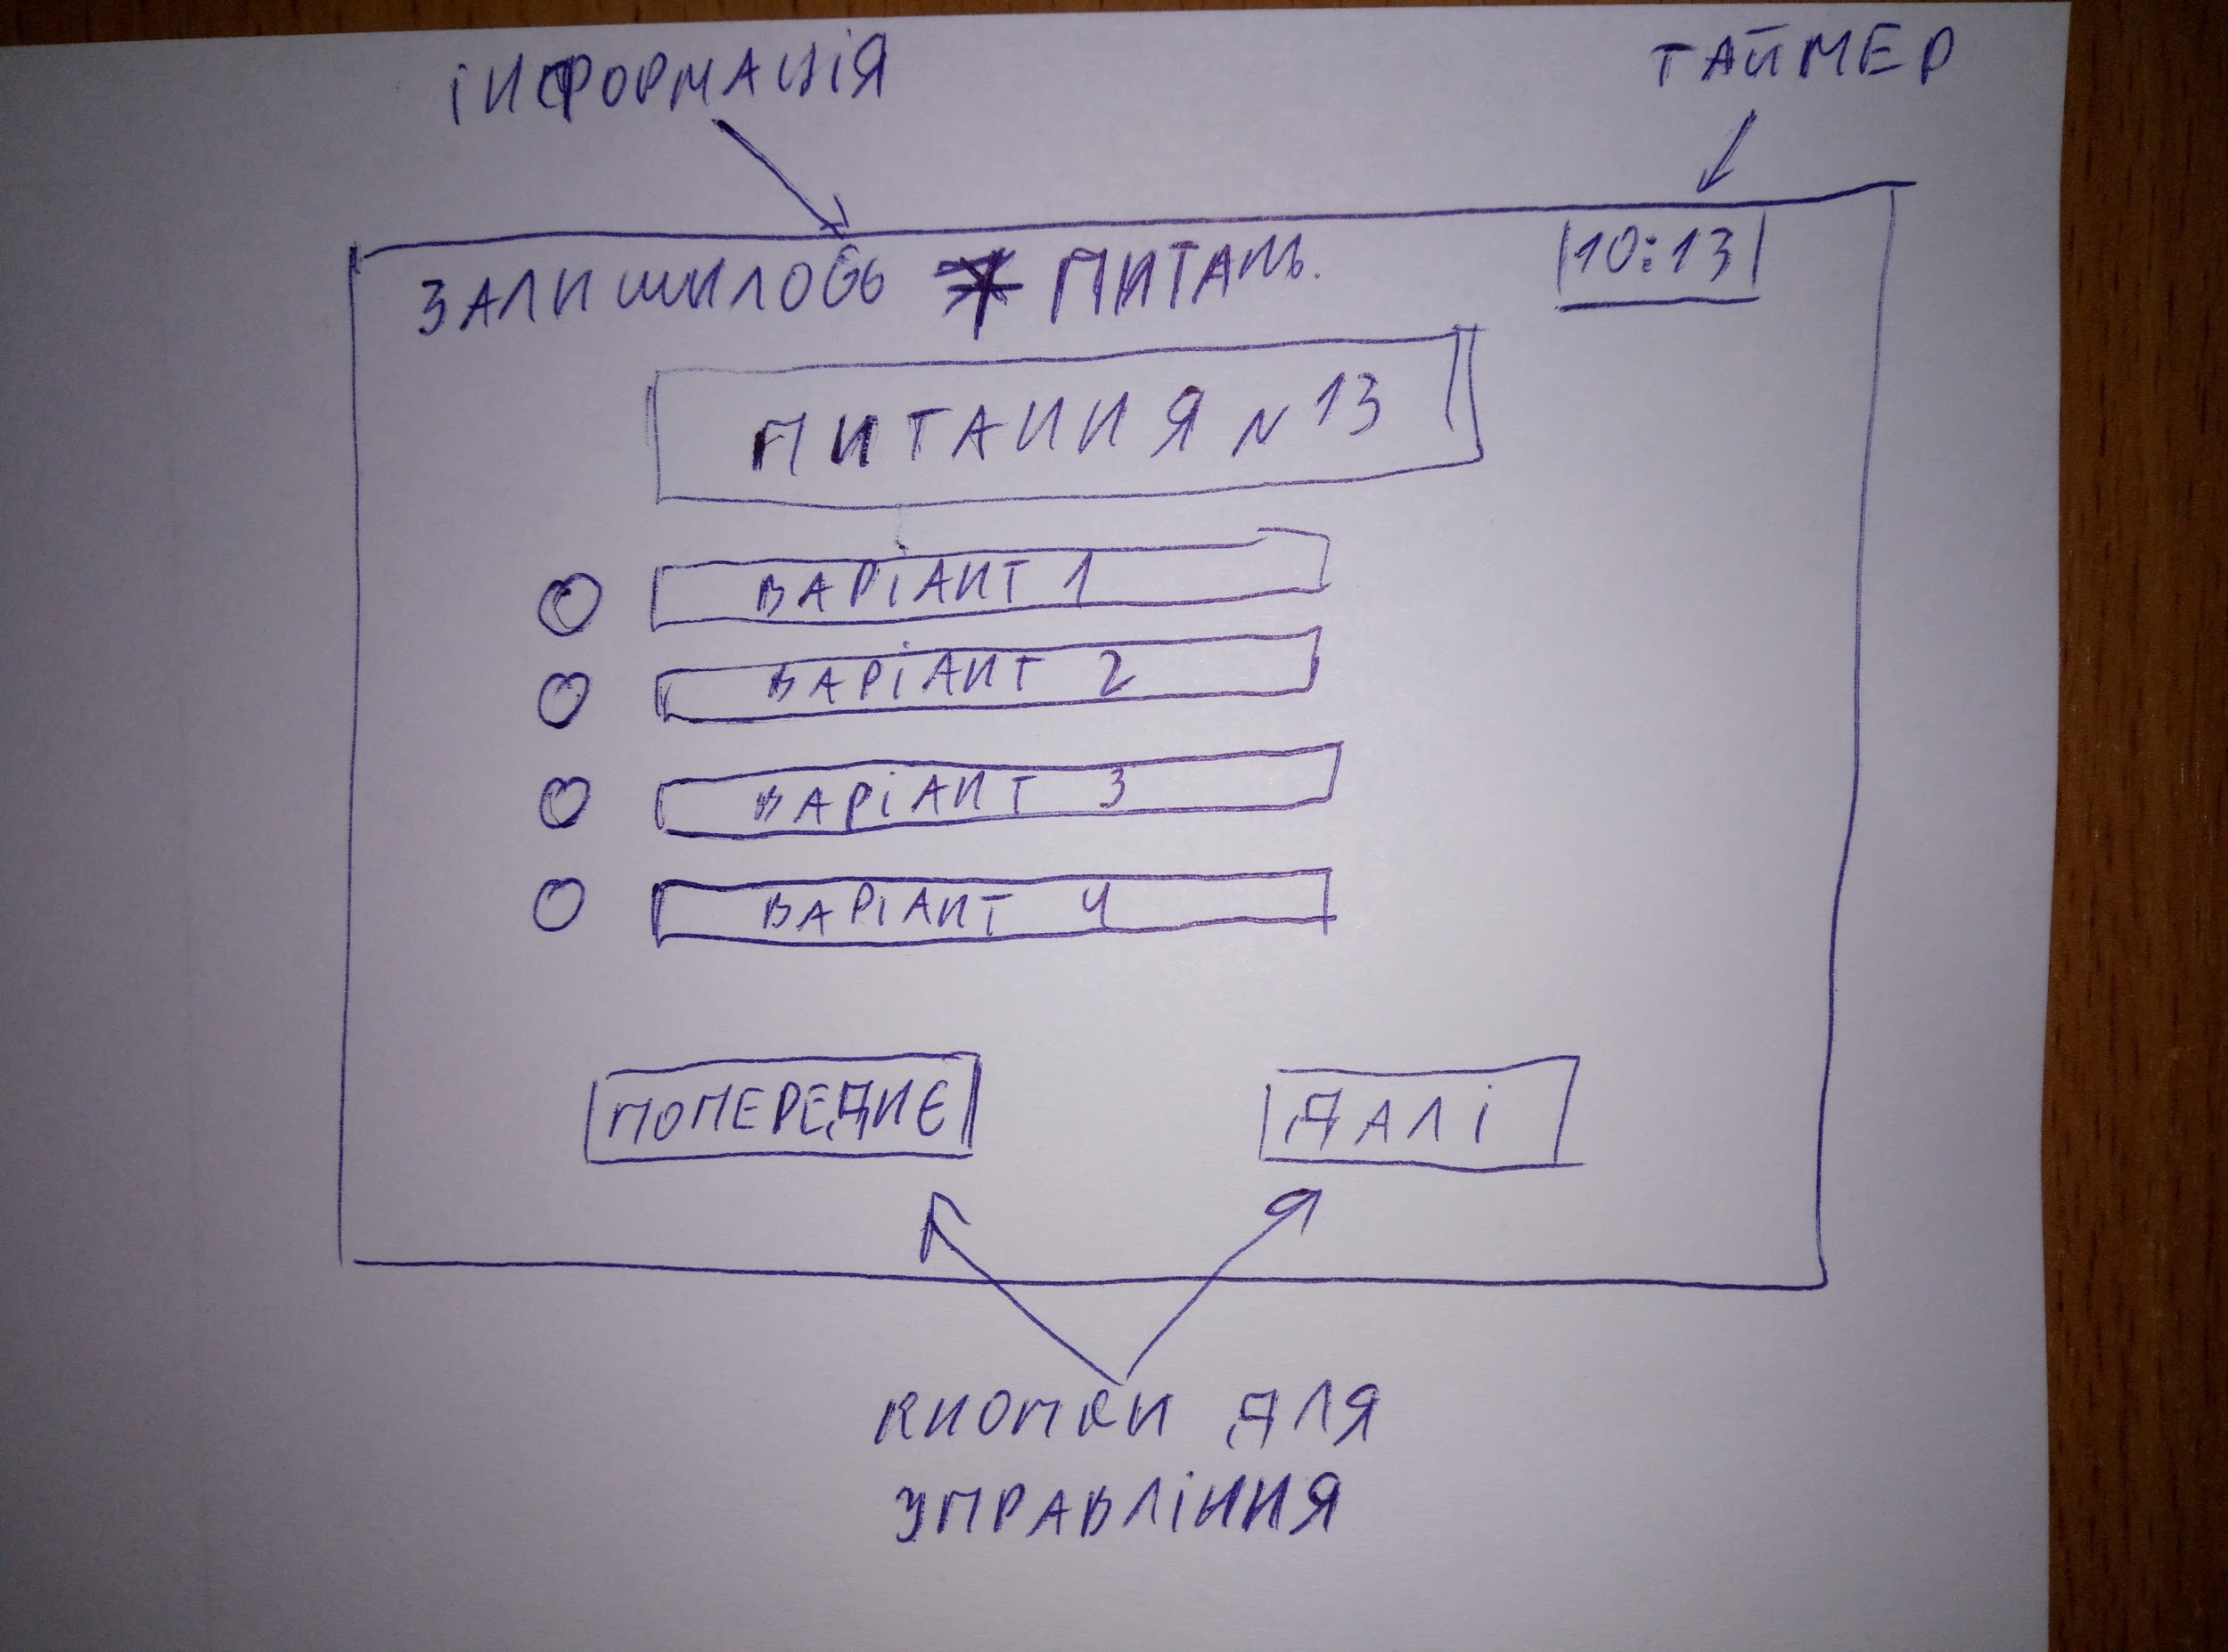 ІНФОРМАЦІЯ
ТАЙМЕР
ЗАЛИШИЛОСЬ * ПИТАНЬ.
10:13
ПИТАННЯ N 13
ВАРІАНТ 1
ВАРІАНТ 2
ВАРІАНТ 3
ВАРІАНТ 4
ПОПЕРЕДНЄ
ДАЛІ
КНОПКИ ДЛЯ
УПРАВЛІННЯ